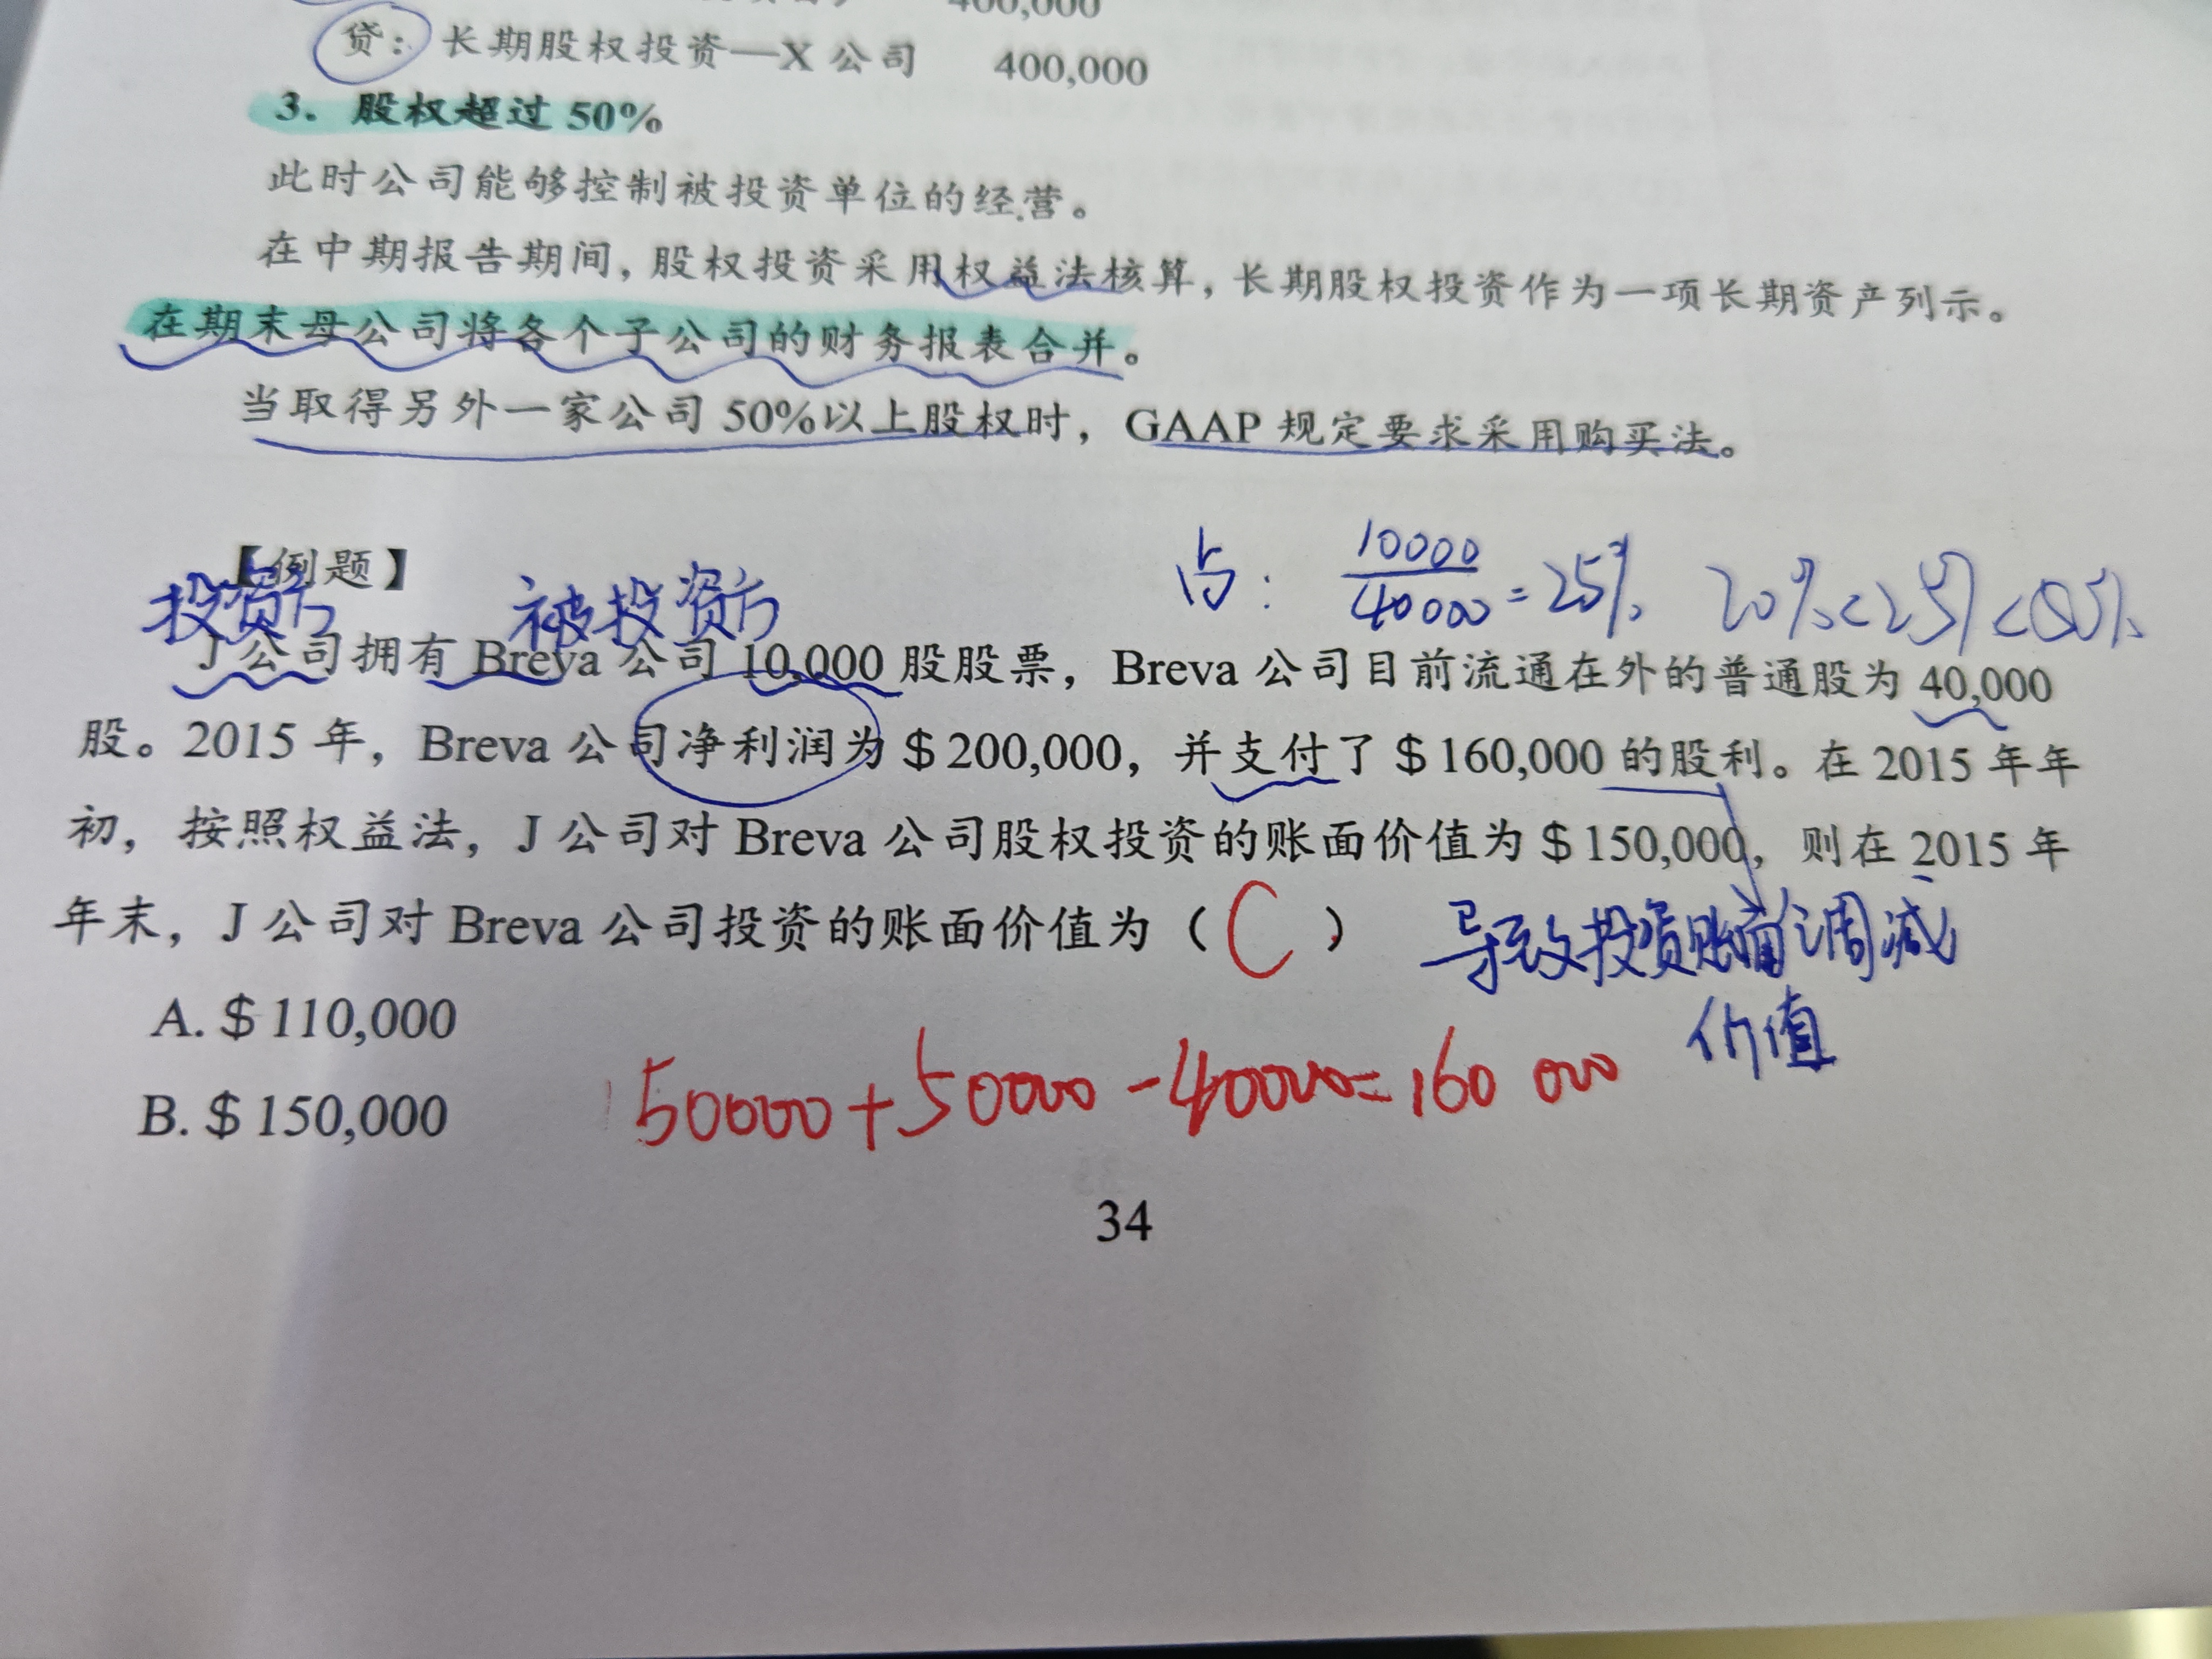 400,000
贷：长期股权投资—X 公司 400,000
3. 股权超过 50%
此时公司能够控制被投资单位的经营。
在中期报告期间，股权投资采用权益法核算，长期股权投资作为一项长期资产列示。
在期末母公司将各个子公司的财务报表合并。
当取得另外一家公司 50%以上股权时，GAAP 规定要求采用购买法。
占： 10000/40000 = 25% 20%<25%<50%
【例题】
投资方 被投资方
J 公司拥有 Breva 公司 10,000 股股票，Breva 公司目前流通在外的普通股为 40,000
股。2015 年，Breva 公司净利润为＄200,000，并支付了＄160,000 的股利。在 2015 年年
初，按照权益法，J 公司对 Breva 公司股权投资的账面价值为＄150,000，则在 2015 年
年末，J 公司对 Breva 公司投资的账面价值为（ C ）
导致投资账面调减
价值
A.＄110,000
150000+50000-40000=160 000
B.＄150,000
34